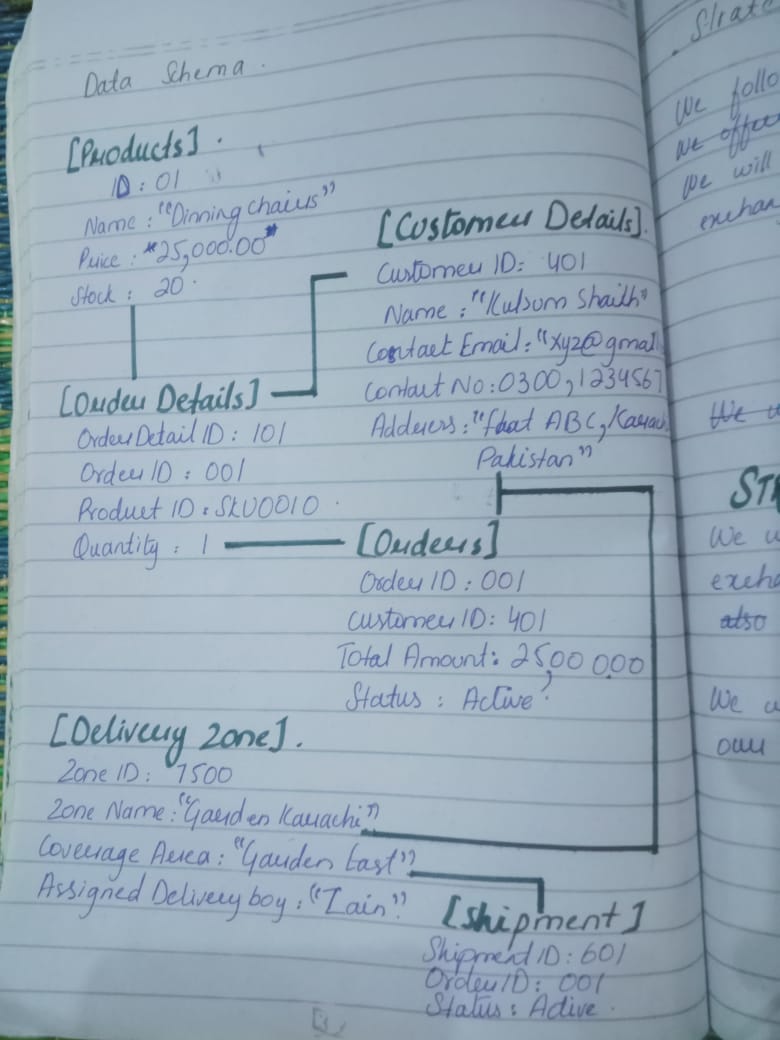 Data Schema.
[Products].
ID: 01
Name: "Dinning chairs"
Price: "25,000.00"
Stock: 20.
[Customer Details].
Customer ID: 401
Name: "Kulsum Shaikh"
Contact Email: "xyz@gmail
Contact No: 0300,1234567
Address: "flat ABC, Karach
Pakistan"
[Order Details]
Order Detail ID: 101
Order ID: 001
Product ID: SKU0010.
Quantity: 1
[Orders]
Order ID: 001
Customer ID: 401
Total Amount: 25,00000
Status: Active
[Delivery Zone].
Zone ID: 7500
Zone Name: "Garden Karachi"
Coverage Area: "Garden East"
Assigned Delivery boy: "Zain"
[Shipment]
Shipment ID: 601
Order ID: 001
Status: Active.
We follo
We offer
We will
exchan
We u
STR
We u
excha
also
We u
our